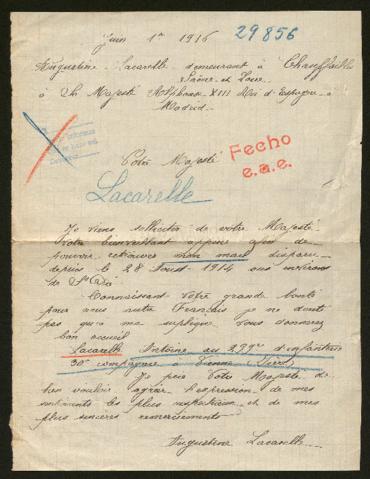 Juin 1er 1916
29856
Augustine Lacarelle demeurant à Chauffailles
Saône et Loire
à Sa Majesté Alphonse XIII Roi d'Espagne à
Madrid
Fecho
e.a.e.
Votre Majesté
Lacarelle
Je viens solliciter de votre Majesté
Votre bienveillant appui afin de
pouvoir retrouver mon mari disparu
depuis le 28 Aout 1914 aux environs
de St Dié
Connaissant Votre grande bonté
pour nous autre Français je ne doute
pas qu'a ma supplique Vous donnerez
bon accueil
Lacarelle Antoine au 299e d'infanterie
30e compagnie à Vienne Isère
Je prie Votre Majesté de
bien vouloir agréer l'expression de mes
sentiments les plus respectueux et de mes
plus sincères remerciements
Augustine Lacarelle